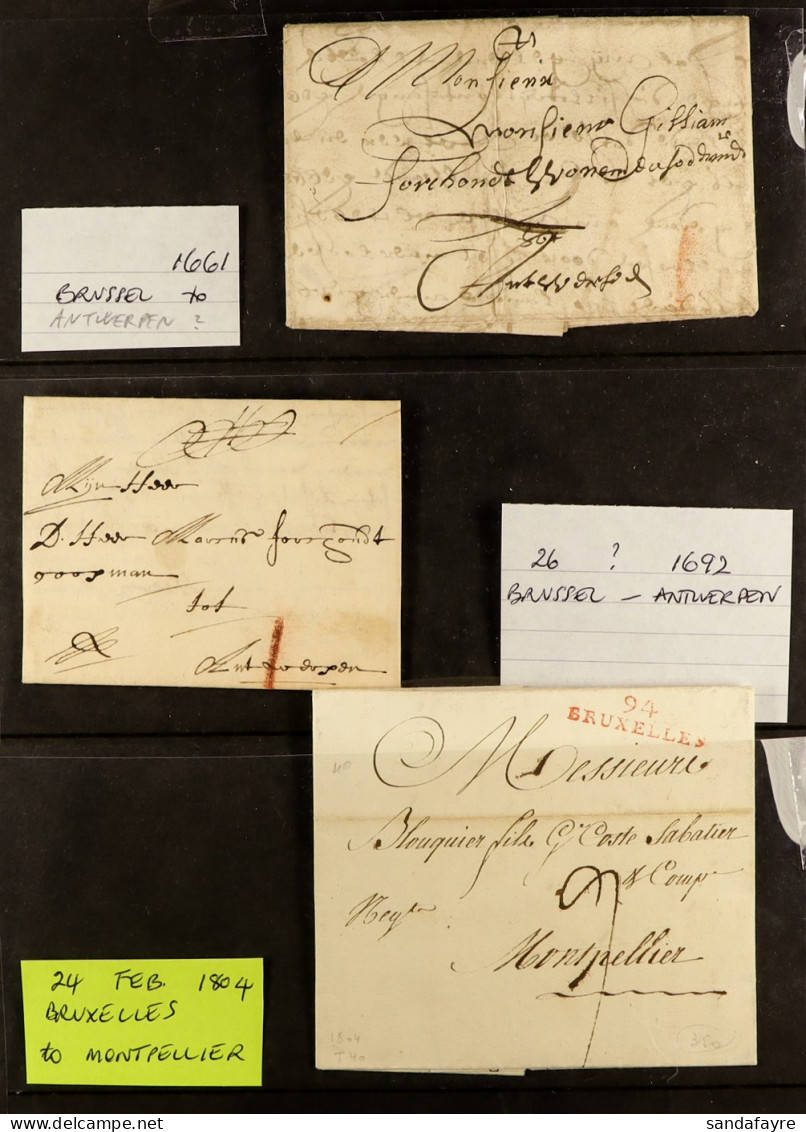 A Monsieur
Monsieur Gilliam
forchondt
Antwerpen
1661
BRUSSEL to
ANTWERPEN ?
Mijn Heer
D. Heer Marcus forchondt
coopman
tot
Antwerpen
26 ? 1692
BRUSSEL – ANTWERPEN
94
BRUXELLES
40
Messieurs
Blouquier fils Coste Sabatier
& Comp
Neg
Montpellier
1804
T 40
350
24 FEB. 1804
BRUXELLES
to MONTPELLIER
sandafayre